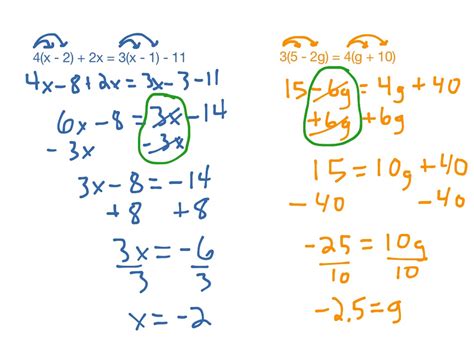 4(x - 2) + 2x = 3(x - 1) - 11
4x - 8 + 2x = 3x - 3 - 11
6x - 8 = 3x - 14
- 3x - 3x
3x - 8 = - 14
+ 8 + 8
3x = - 6
3 3
x = - 2
3(5 - 2g) = 4(g + 10)
15 - 6g = 4g + 40
+ 6g + 6g
15 = 10g + 40
- 40 - 40
- 25 = 10g
10 10
- 2.5 = g